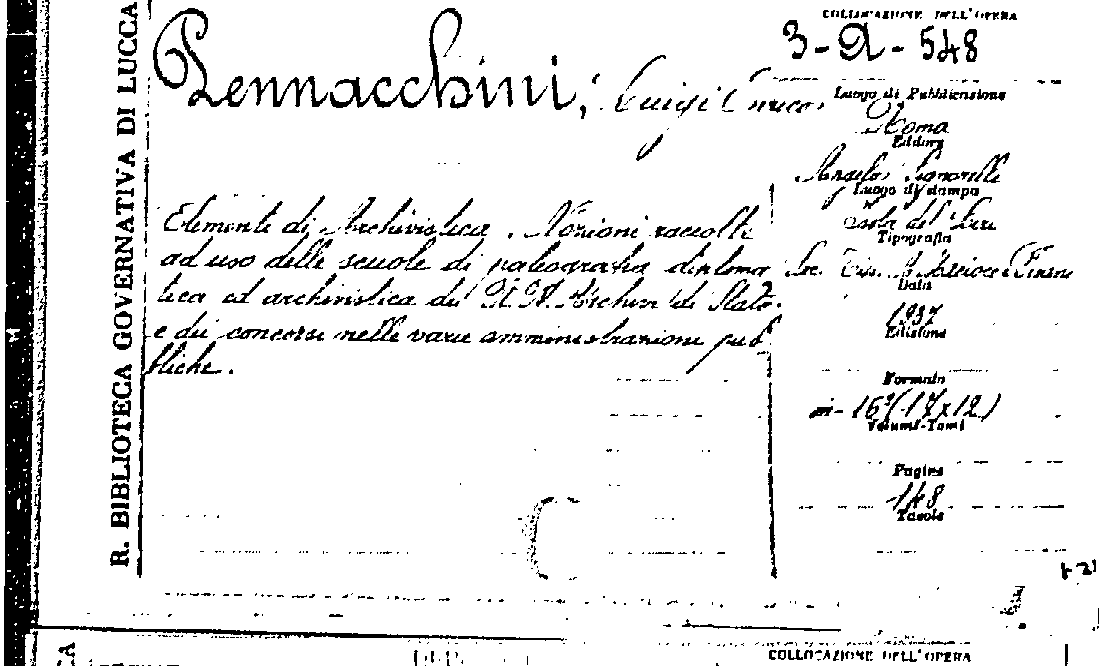 R. BIBLIOTECA GOVERNATIVA DI LUCCA
Pennacchini, Luigi Enrico
Elementi di Archivistica. Nozioni raccolte
ad uso delle scuole di paleografia diploma
tica ed archivistica dei RR. Archivi di Stato
e dei concorsi nelle varie amministrazioni pub
bliche.
COLLOCAZIONE DELL'OPERA
3-D-548
Luogo di Pubblicazione
Roma
Editore
Angelo Signorelli
Luogo di stampa
Isola del Liri
Tipografia
Soc. Tip. A. Macioce e Pisani
Data
1937
Edizione
Formato
in-16°(17x12)
Volumi-Tomi
Pagine
148
Tavole
COLLOCAZIONE DELL'OPERA